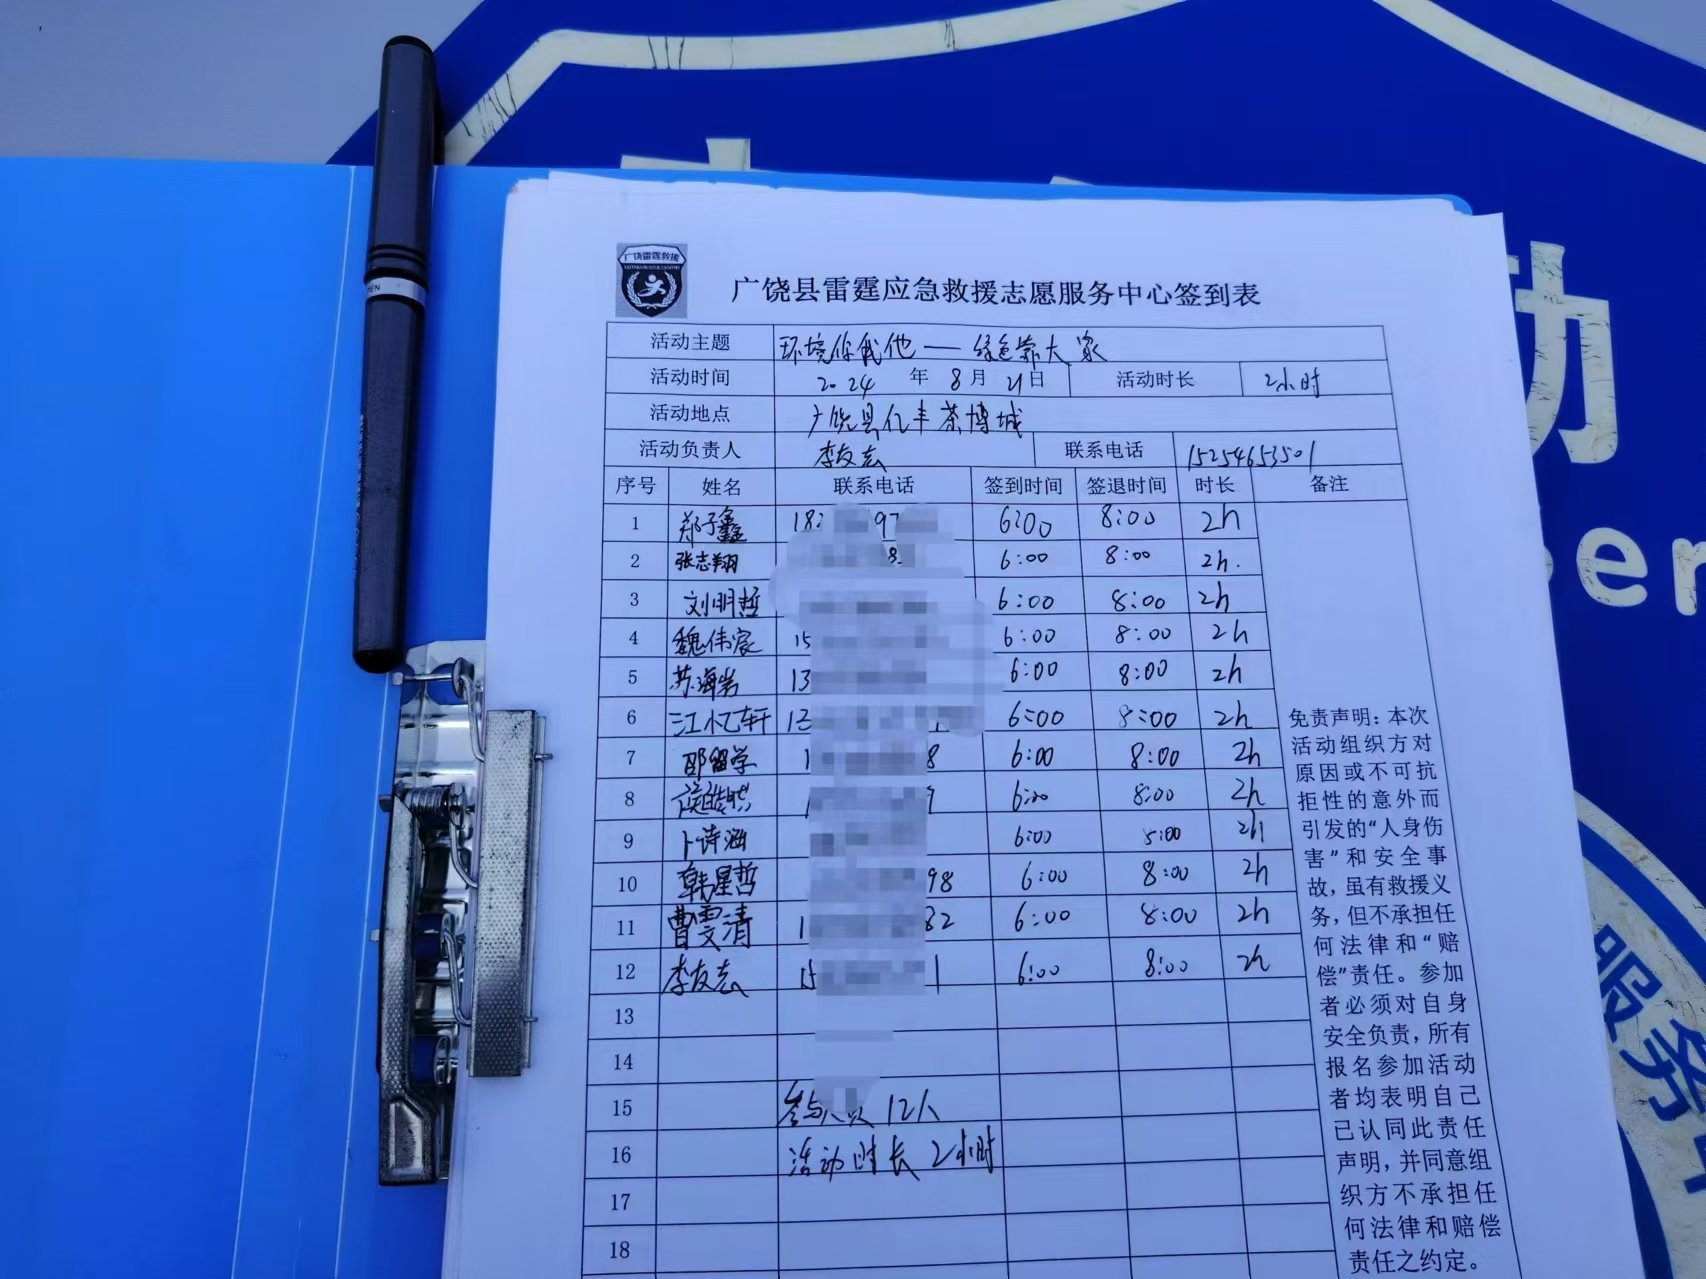 广饶雷霆救援
广饶县雷霆应急救援志愿服务中心签到表
活动主题 环境你我他——绿色靠大家
活动时间 2024 年 8 月 21 日 活动时长 2小时
活动地点 广饶县亿丰茶博城
活动负责人 李友志 联系电话 15254653501
序号 姓名 联系电话 签到时间 签退时间 时长 备注
1 郑子鑫 18 97 6:00 8:00 2h
2 张志翔 8 6:00 8:00 2h.
3 刘明哲 6:00 8:00 2h
4 魏伟宸 15 6:00 8:00 2h
5 苏海岩 13 6:00 8:00 2h
6 江忆轩 13 6:00 8:00 2h
7 邵留学 1 8 6:00 8:00 2h
8 6:00 8:00 2h
9 卜诗涵 6:00 8:00 2h
10 韩星哲 98 6:00 8:00 2h
11 曹雯清 1 82 6:00 8:00 2h
12 李友志 15 1 6:00 8:00 2h
13
14
15 参与人员 12人
16 活动时长 2小时
17
18
免责声明：本次
活动组织方对
原因或不可抗
拒性的意外而
引发的“人身伤
害”和安全事
故，虽有救援义
务，但不承担任
何法律和“赔
偿”责任。参加
者必须对自身
安全负责，所有
报名参加活动
者均表明自己
已认同此责任
声明，并同意组
织方不承担任
何法律和赔偿
责任之约定。
动
eer
服务